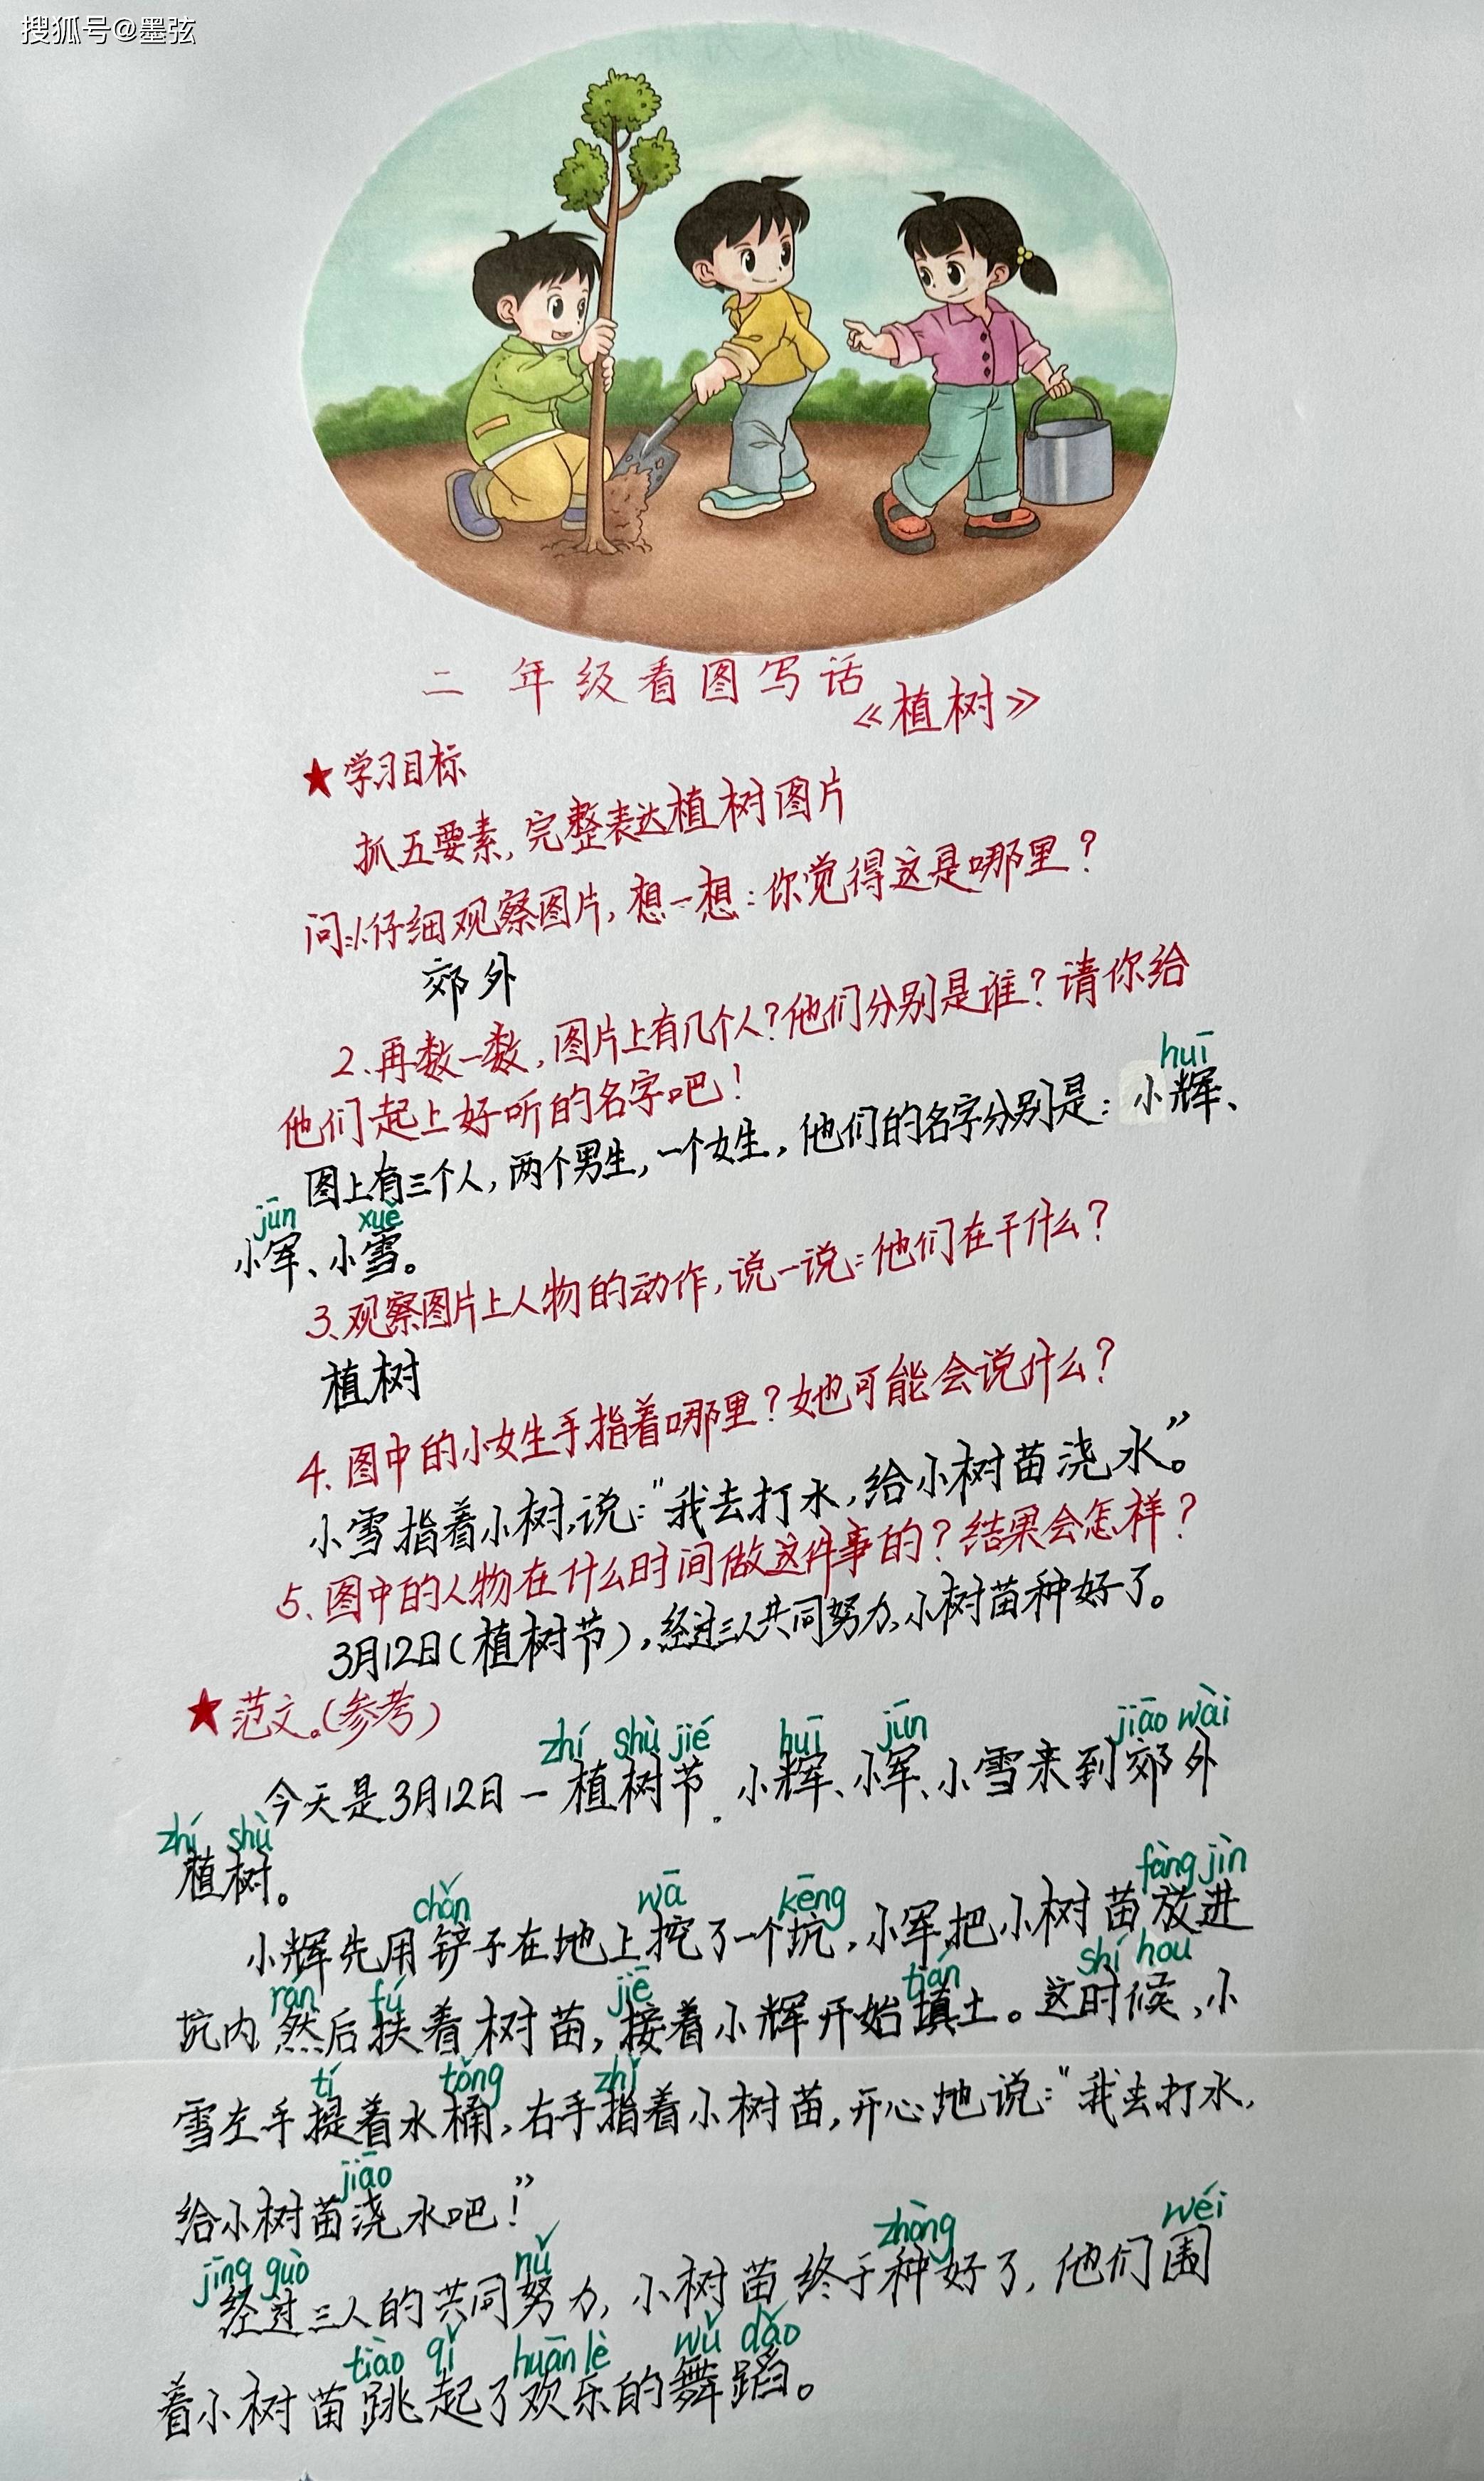 搜狐号@墨弦
二年级看图写话
《植树》
★学习目标
抓五要素,完整表达植树图片
问:1.仔细观察图片,想一想:你觉得这是哪里?
郊外
2.再数一数,图片上有几个人?他们分别是谁?请你给
huī
他们起上好听的名字吧!
图上有三个人,两个男生,一个女生,他们的名字分别是:小辉、
jūn xuě
小军、小雪。
3.观察图片上人物的动作,说一说:他们在干什么?
植树
4.图中的小女生手指着哪里?她也可能会说什么?
小雪指着小树,说:"我去打水,给小树苗浇水。"
5、图中的人物在什么时间做这件事的?结果会怎样?
3月12日(植树节),经过三人共同努力,小树苗种好了。
★范文。(参考)
zhí shù jié huī jūn jiāo wài
今天是3月12日一植树节.小辉、小军、小雪来到郊外
zhí shù
植树。
chǎn wā kēng fàng jìn
小辉先用铲子在地上挖了一个坑,小军把小树苗放进
rán fú jiē tián shí hou
坑内,然后扶着树苗,接着小辉开始填土。这时候,小
tí tǒng zhǐ
雪左手提着水桶,右手指着小树苗,开心地说:"我去打水,
jiāo
给小树苗浇水吧!"
jīng guò nǔ zhòng wéi
经过三人的共同努力,小树苗终于种好了,他们围
tiào qǐ huān lè wǔ dǎo
着小树苗跳起了欢乐的舞蹈。